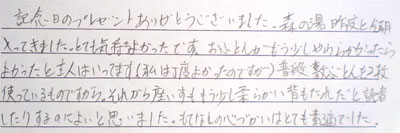 記念日のプレゼントありがとうございました。森の湯昨夜と今朝
入ってきました。とても気持よかったです。おふとんがもう少しやわらかかったら
よかったと主人はいってます(私は丁度よかったのですが)普段敷ぶとんを2枚
使っているものですから。それから座いすももう少し柔らかい背もたれだと読書
したりするのによいと思いました。おもてなしの心づかいはとても素適でした。